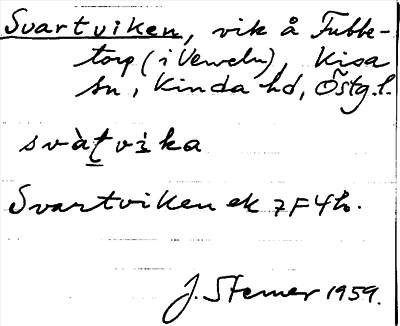 Svartviken, vik å Fubbe-
torp (i Verveln), Kisa
sn, Kinda hd, Östg.l.
svàt̠vika
Svartviken ek 7F4h.
J. Sterner 1959.